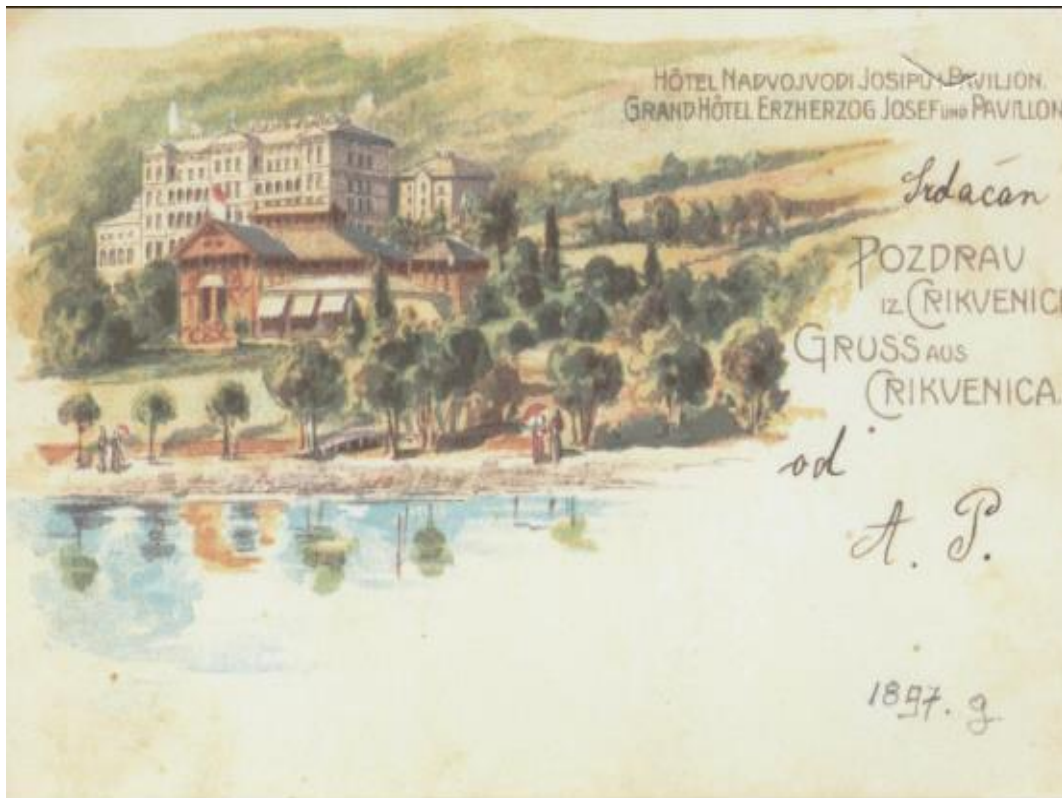 HÔTEL NADVOJVODI JOSIPU I PAVILJON.
GRAND HÔTEL ERZHERZOG JOSEF UND PAVILLON
Srdačan
POZDRAV
IZ CRIKVENICE
GRUSS AUS
CRIKVENICA.
od
A. P.
1897. g